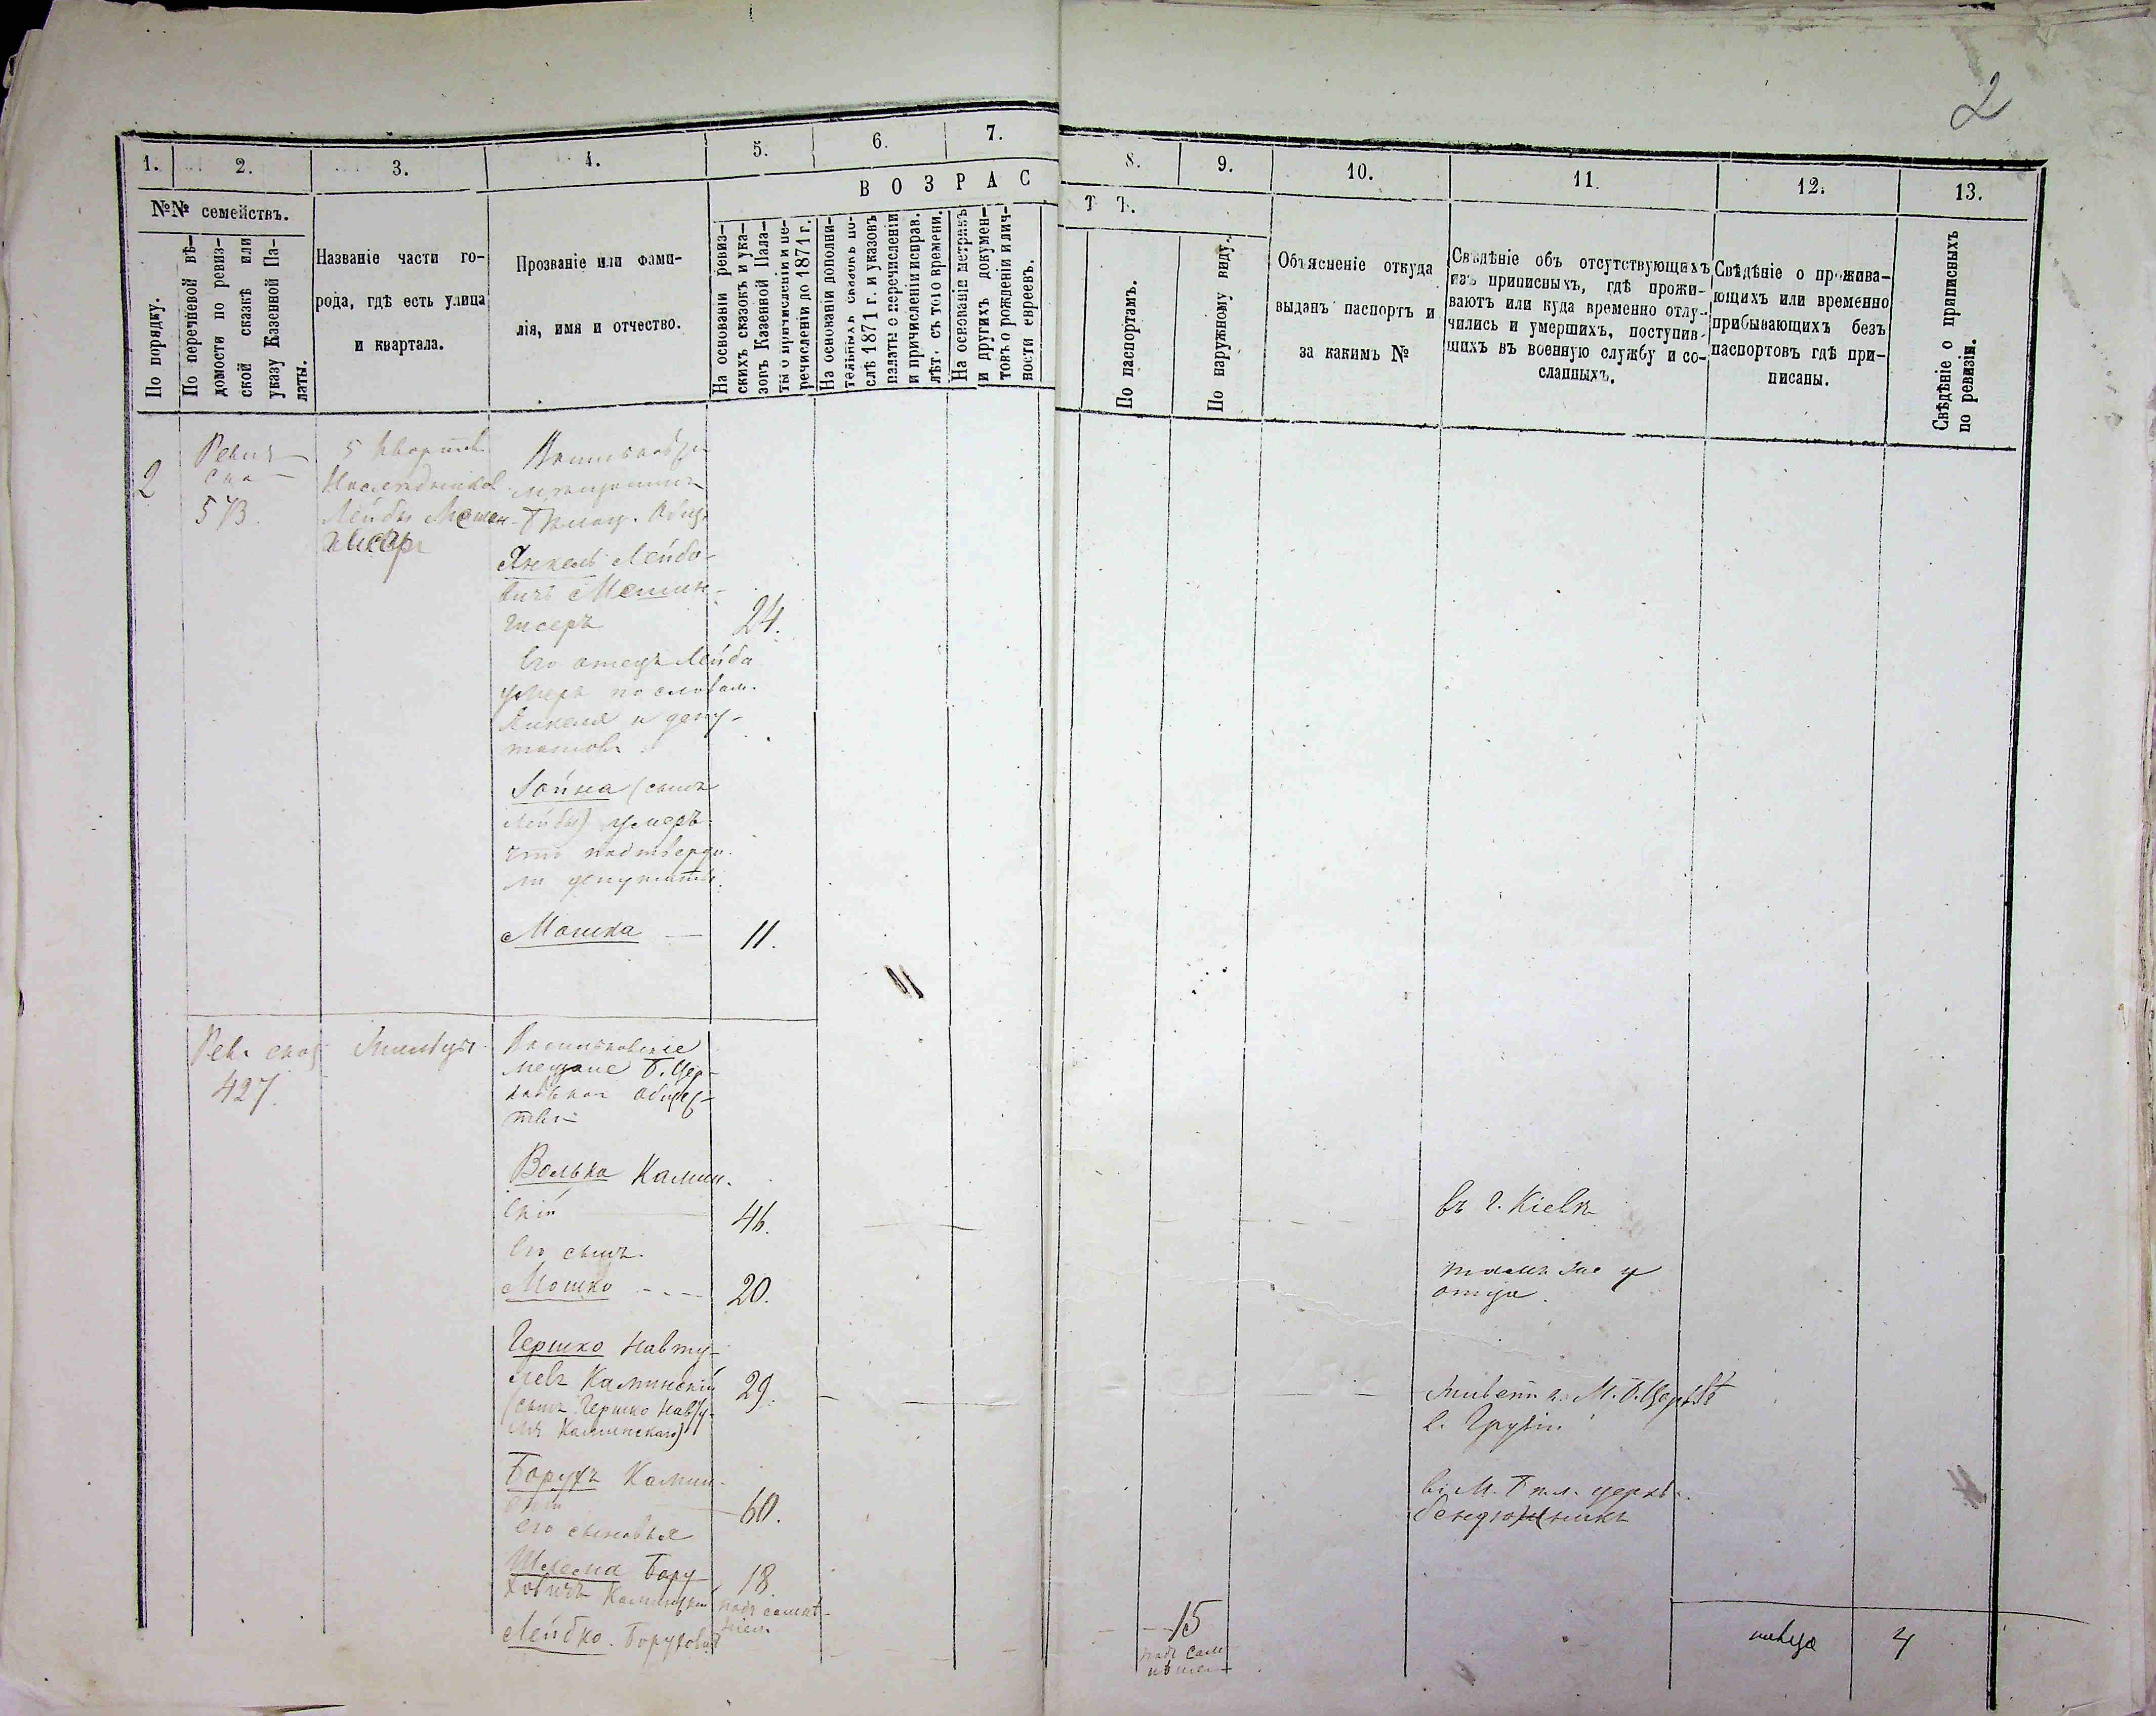 2
1. 2. 3. 4. 5. 6. 7. 8. 9. 10. 11. 12. 13.
№№ семействъ.
В О З Р А С Т Ъ.
По порядку.
По перечневой вѣ-
домости по ревиз-
ской сказкѣ или
указу Казенной Па-
латы.
Названіе части го-
рода, гдѣ есть улица
и квартала.
Прозваніе или фами-
лія, имя и отчество.
На основаніи ревиз-
скихъ сказокъ и ука-
зовъ Казенной Пала-
ты о причисленіи и пе-
речисленіи до 1871 г.
На основаніи дополни-
тельныхъ сказокъ по-
слѣ 1871 г. и указовъ
палаты о перечисленіи
и причисленіи исправ.
лѣт. съ того времени.
На основаніи метрикъ
и другихъ докумен-
товъ о рожденіи и лич-
ности евреевъ.
По паспортамъ.
По наружному виду.
Объясненіе откуда
выданъ паспортъ и
за какимъ №
Свѣдѣніе объ отсутствующихъ
изъ приписныхъ, гдѣ прожи-
ваютъ или куда временно отлу-
чились и умершихъ, поступив-
шихъ въ военную службу и со-
сланныхъ.
Свѣдѣніе о прожива-
ющихъ или временно
прибывающихъ безъ
паспортовъ гдѣ при-
писаны.
Свѣдѣніе о приписныхъ
по ревизіи.
2
573.
5
Лейбы
Янкель Лейбо-
вичъ Мешен-
гисеръ 24.
Его отецъ Лейба
умеръ по словам.
Янкеля и депу-
татовъ
Іойна (сынъ
Лейбы) умеръ
что подтверди-
ли депутаты.
Мошка — 11.
Рев. сказ.
427.
Васильковские
мещане Б. Цер-
ковскаго общес-
тва
Волька Камин-
скій 46. въ г. Кіевѣ
Его сынъ.
Мошко - - - 20. тамъ же у
отца.
Гершко Навту-
левъ Каминскій 29. живетъ М. Б. Церквѣ
(сынъ Гершко Навту-
ля Каминскаго)
Борухъ Камин-
скій 60.
его сыновья
Шлема Бору
ховичъ Каминскій 18.
подъ сомнѣ-
ніем
Лейбко Борухов. 15
подъ сом
нѣніем
4